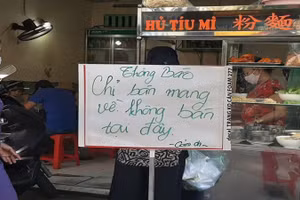 HỦ TÍU MÌ 粉麵
Thông Báo
Chỉ bán mang
về không bán
tại đây.
Cảm ơn